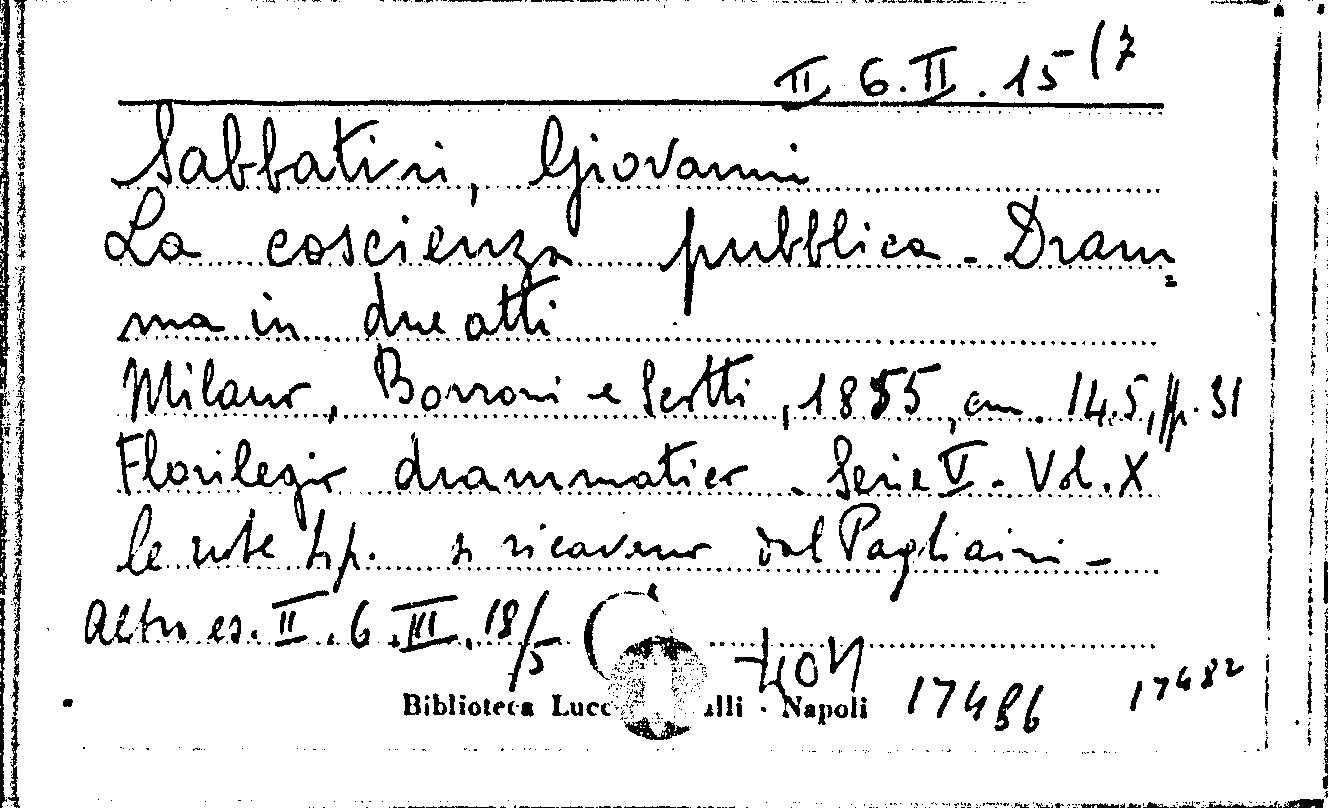 II 6. II. 15 (7
Sabbatini, Giovanni
La coscienza pubblica - Dram=
ma in due atti
Milano, Borroni e Scotti, 1855, cm. 14.5, pp. 31
Florilegio drammatico - Serie V - Vol. X
le note tip. si ricavano dal Pagliaini -
Altro es. II. 6. III. 18/5
Biblioteca Lucc alli - Napoli 17486 17482